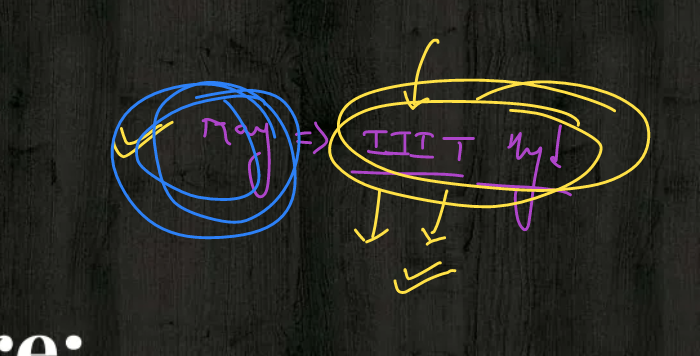 May => IIIT Hyd
re: